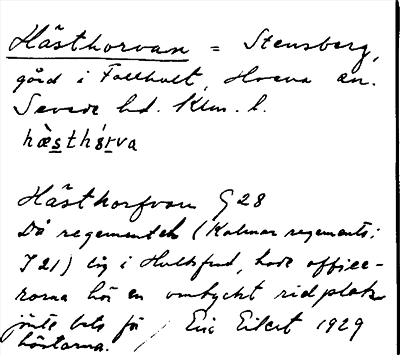 Hästhorvan = Stensberg,
gård i Fallhult, Hvena sn.
Sevede hd. Klm. l.
hæ̀sthórva
Hästhorfvan G 28
Då regementet (Kalmar regements;
I 21) låg i Hultsfred, hade office-
rarna här en omtyckt ridplats
jämte bete för / Eric Eilert 1929
hästarna.